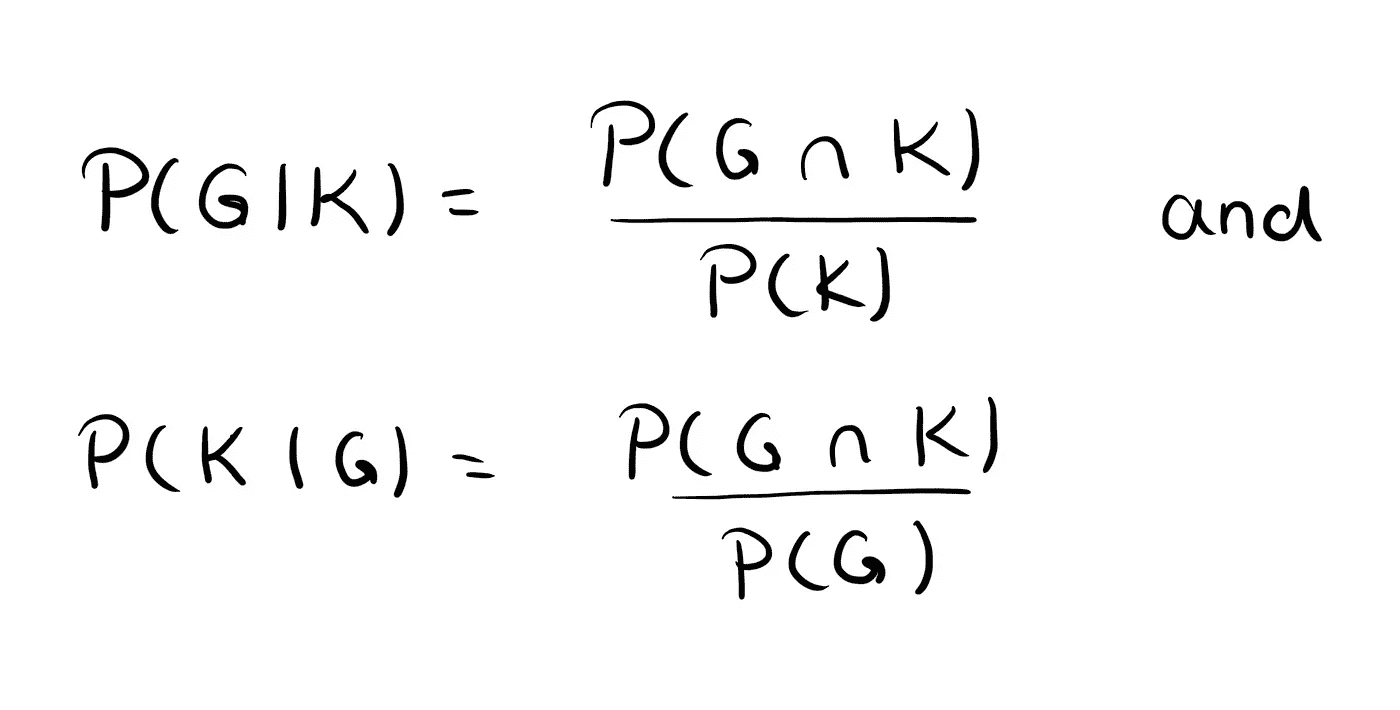 P(G|K) = P(G ∩ K) / P(K) and
P(K|G) = P(G ∩ K) / P(G)